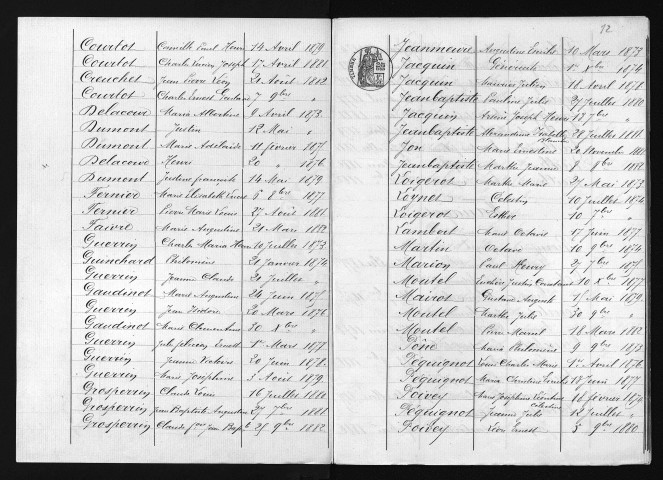 Courtot Camille Emil Henri 14 Avril 1879
Courtot Charles Joseph 17 Avril 1881
Creuchet Jean Pierre Léon 21 Août 1882
Courtot Charles Ernest Gustave 7 9bre "
Delacour Maria Albertine 8 Avril 1873
Dumont Justin 12 Mai "
Dumont Marie Adelaïde 11 février 187
Delacour Henri 20 " 1876
Dumont Justine françoise 14 Mai 1879
Fernier Marie Elisabeth 6 8bre 1877
Fernier Pierre Marie Louis 27 Août 1881
Faivre Marie Augustine 21 Mars 1882
Guerrin Charles Maria 10 Juillet 1873
Guinchard Philomène 21 Janvier 1874
Guerrin Jeanne Claude 21 Juillet "
Gaudinot Marie Augustine 24 Juin 187
Guerrin Jean Isidore 20 Mars 1876
Gaudinot Marie Clementine 30 Xbre "
Guerrin Ernest 1er Mars 1877
Guerrin Jeanne Victoire 20 Juin 1878
Guerrin Marie Josephine 3 Août 1879
Grosperrin Claude Louis 16 Juillet 1880
Grosperrin Jean Baptiste Augustin 27 7bre 1881
Grosperrin Claude Jean Bapt 25 9bre 1882
92
Jeanmeure Augustine Emilie 10 Mars 1873
Jacquin 1er Xbre 1874
Jacquin Julien 11 Avril 1878
Jeanbaptiste Pauline Julie 27 Juillet 1880
Jacquin Joseph Henri 18 7bre "
Jeanbaptiste Alexandrine Isabelle 28 Juillet 1881
Jon Marie Ernestine 20 Novembre 1881
Jeanbaptiste Marthe Jeanne 8 9bre 1882
Loigerot Marthe Marie 27 Mai 1873
Loynet Celestin 10 Juillet 1874
Loigerot Esther 10 7bre "
Lambert Marie Octavie 17 Juin 1877
Martin Octave 10 9bre 1874
Marion Paul Henry 27 7bre 1875
Moutel Justin 10 Xbre 1877
Mairot Gustave Auguste 15 Mai 1879
Moutel Marthe Julie 30 9bre "
Moutel Pierre Marcel 18 Mars 1882
Marie Philomène 9 9bre 1873
Pequignot Louis Charles Marie 1er Avril 1876
Pequignot Maria Christine Emilie 18 Juin 1877
Poivey Marie Josephine 16 février 1879
Pequignot Jeanne Julie 12 Juillet "
Poivey Léon Ernest 5 9bre 1880